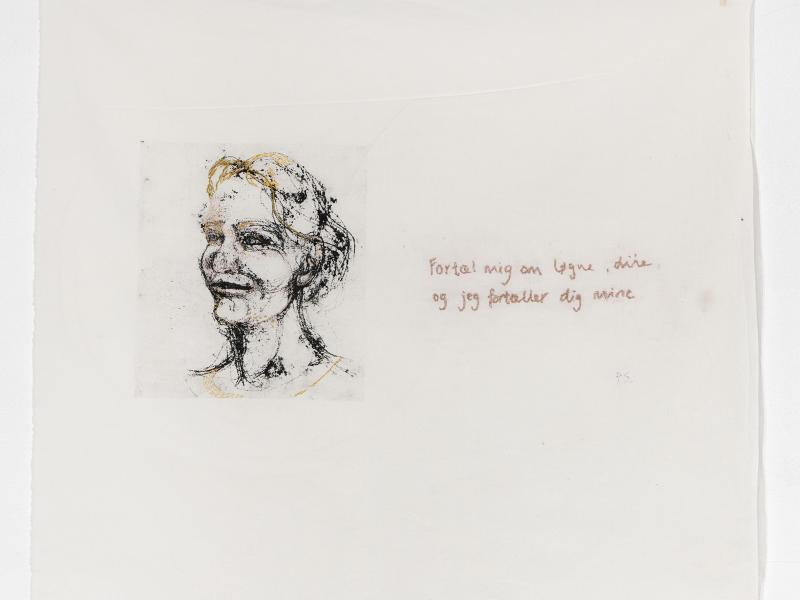 Fortæl mig om løgne, dine,
og jeg fortæller dig mine
P.S.